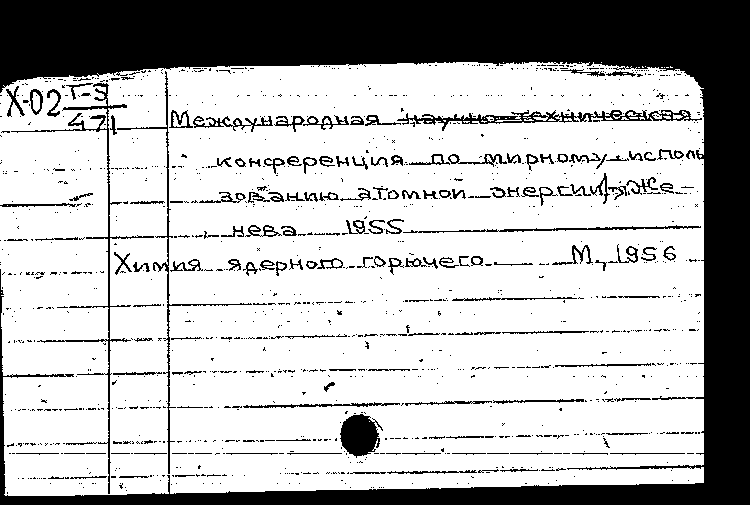 Х-02 T-S
471
Международная научно-техническая
конференция по мирному исполь
зованию атомной энергии, Же-
нева 1955
Химия ядерного горючего. М., 1956